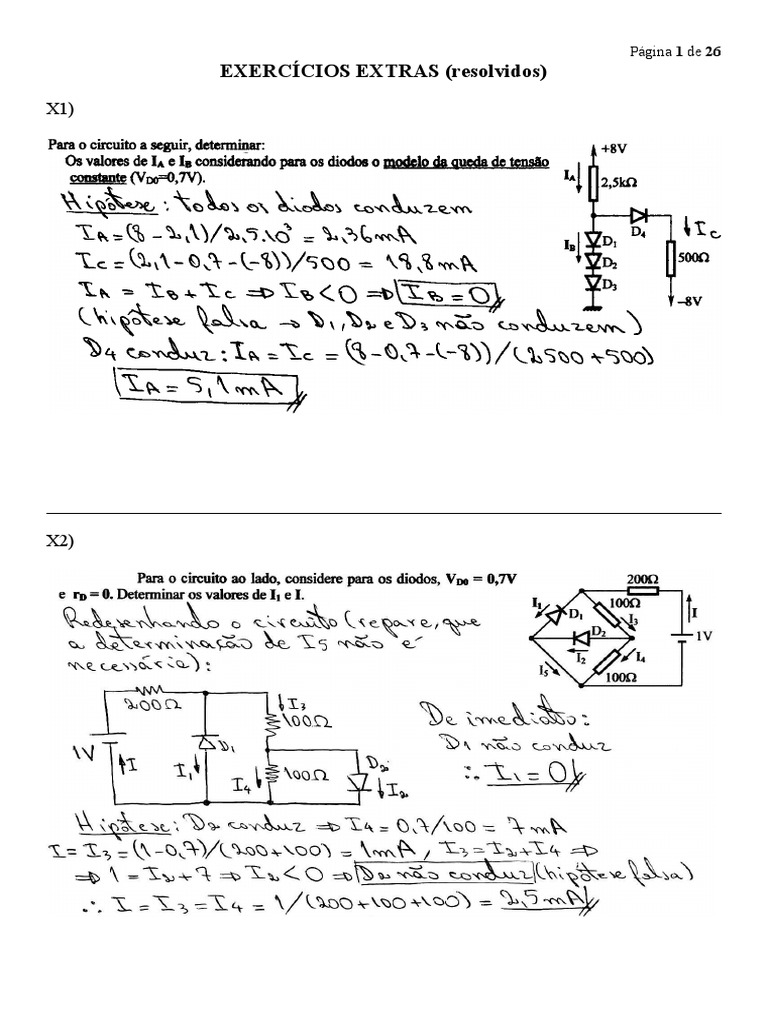 Página 1 de 26
EXERCÍCIOS EXTRAS (resolvidos)
X1)
Para o circuito a seguir, determinar:
Os valores de IA e IB considerando para os diodos o modelo da queda de tensão
constante (VD0=0,7V).
Hipótese: todos os diodos conduzem
IA=(8-2,1)/2,5.10³=2,36mA
IC=(2,1-0,7-(-8))/500=18,8mA
IA=IB+IC⇒IB<0⇒IB=0
(hipótese falsa → D1, D2 e D3 não conduzem)
D4 conduz: IA=IC=(8-0,7-(-8))/(2500+500)
IA=5,1mA
+8V
IA
2,5kΩ
D4
IC
IB
D1
D2
D3
500Ω
-8V
X2)
Para o circuito ao lado, considere para os diodos, VD0 = 0,7V
e rD = 0. Determinar os valores de I1 e I.
Redesenhando o circuito (repare, que
a determinação de I5 não é
necessária):
200Ω
I1
D1
100Ω
I3
I
D2
1V
I2
I4
I5
100Ω
200Ω
I3
100Ω
1V
I
D1
I1
I4
100Ω
D2
I2
De imediato:
D1 não conduz
∴ I1=0
Hipótese: D2 conduz ⇒ I4=0,7/100=7mA
I=I3=(1-0,7)/(200+100)=1mA, I3=I2+I4⇒
⇒1=I2+7⇒I2<0⇒D2 não conduz (hipótese falsa)
∴ I=I3=I4=1/(200+100+100)=2,5mA